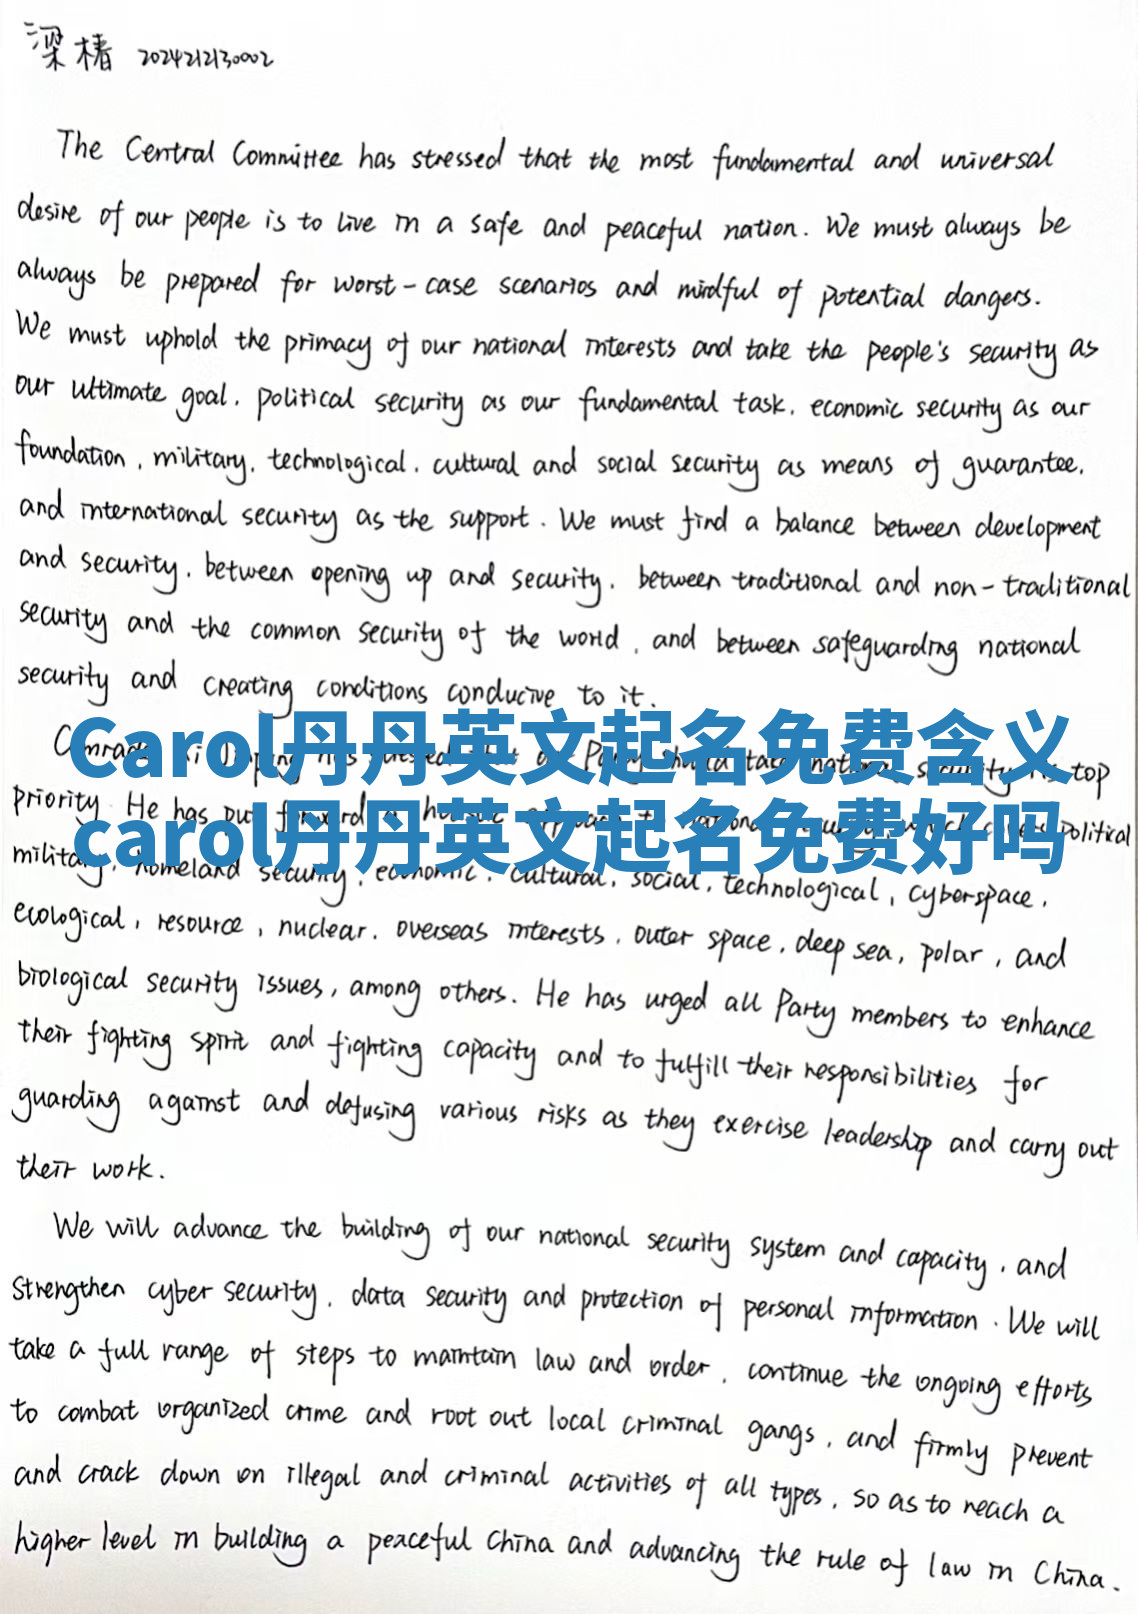 梁椿 2024212130002
The Central Committee has stressed that the most fundamental and universal
desire of our people is to live in a safe and peaceful nation. We must always be
always be prepared for worst-case scenarios and mindful of potential dangers.
We must uphold the primacy of our national interests and take the people's security as
our ultimate goal, political security as our fundamental task, economic security as our
foundation, military, technological, cultural and social security as means of guarantee,
and international security as the support. We must find a balance between development
and security, between opening up and security, between traditional and non-traditional
security and the common security of the world, and between safeguarding national
security and creating conditions conducive to it.
Carol丹丹英文起名免费含义
top
priority. He has put
carol丹丹英文起名免费好吗
political
military, homeland security, economic, cultural, social, technological, cyberspace,
ecological, resource, nuclear, overseas interests, outer space, deep sea, polar, and
biological security issues, among others. He has urged all Party members to enhance
their fighting spirit and fighting capacity and to fulfill their responsibilities for
guarding against and defusing various risks as they exercise leadership and carry out
their work.
We will advance the building of our national security system and capacity, and
strengthen cyber security, data security and protection of personal information. We will
take a full range of steps to maintain law and order, continue the ongoing efforts
to combat organized crime and root out local criminal gangs, and firmly prevent
and crack down on illegal and criminal activities of all types, so as to reach a
higher level in building a peaceful China and advancing the rule of law in China.